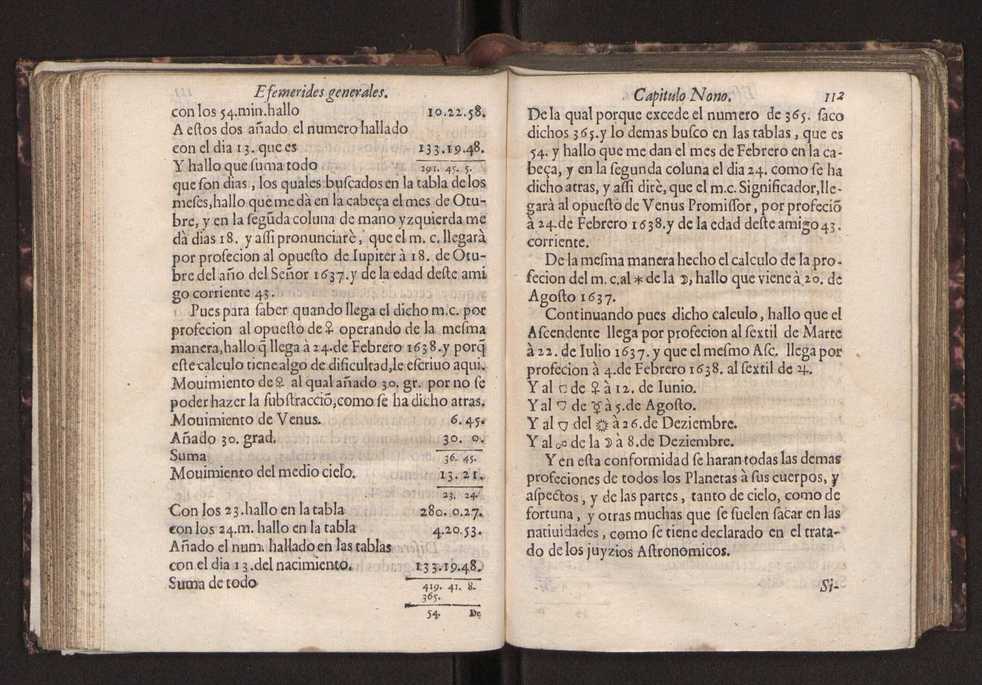 Efemerides generales.
con los 54.min.hallo 10.22.58.
A estos dos añado el numero hallado
con el dia 13. que es 133.19.48.
Y hallo que suma todo 291. 45. 5.
que son dias, los quales buscados en la tabla de los
meses,hallo que me dà en la cabeça el mes de Otu-
bre, y en la segũda coluna de mano yzquierda me
dà dias 18. y assi pronunciarè, que el m. c. llegarà
por profecion al opuesto de Iupiter à 18. de Otu-
bre del año del Señor 1637.y de la edad deste ami
go corriente 43.
Pues para saber quando llega el dicho m.c. por
profecion al opuesto de ♀ operando de la mesma
manera,hallo q̃ llega à 24.de Febrero 1638.y porq̃
este calculo tiene algo de dificultad,le escriuo aqui.
Mouimiento de ♀ al qual añado 30. gr. por no se
poder hazer la substracciõ,como se ha dicho atras.
Mouimiento de Venus. 6. 45.
Añado 30. grad. 30. 0.
Suma 36. 45.
Mouimiento del medio cielo. 13. 21.
23. 24.
Con los 23.hallo en la tabla 280. 0.27.
con los 24.m. hallo en la tabla 4.20.53.
Añado el num. hallado en las tablas
con el dia 13.del nacimiento. 133.19.48.
Suma de todo 419. 41. 8.
365.
54. De
Capitulo Nono. 112
De la qual porque excede el numero de 365. saco
dichos 365.y lo demas busco en las tablas, que es
54. y hallo que me dan el mes de Febrero en la ca-
beça, y en la segunda coluna el dia 24. como se ha
dicho atras, y assi dirè,que el m.c. Significador,lle-
garà al opuesto de Venus Promissor, por profeciõ
à 24.de Febrero 1638.y de la edad deste amigo 43.
corriente.
De la mesma manera hecho el calculo de la pro-
fecion del m. c.al ⚹ de la ☽, hallo que viene à 20. de
Agosto 1637.
Continuando pues dicho calculo, hallo que el
Ascendente llega por profecion al sextil de Marte
à 22. de Iulio 1637. y que el mesmo Asc. llega por
profecion à 4.de Febrero 1638. al sextil de ♃.
Y al □ de ♀ à 12. de Iunio.
Y al ▽ de ☿ à 5.de Agosto.
Y al ▽ del ☼ à 26.de Deziembre.
Y al ☍ de la ☽ à 8.de Deziembre.
Y en esta conformidad se haran todas las demas
profeciones de todos los Planetas à sus cuerpos, y
aspectos, y de las partes, tanto de cielo, como de
fortuna, y otras muchas que se suelen sacar en las
natiuidades, como se tiene declarado en el trata-
do de los juyzios Astronomicos.
Si-